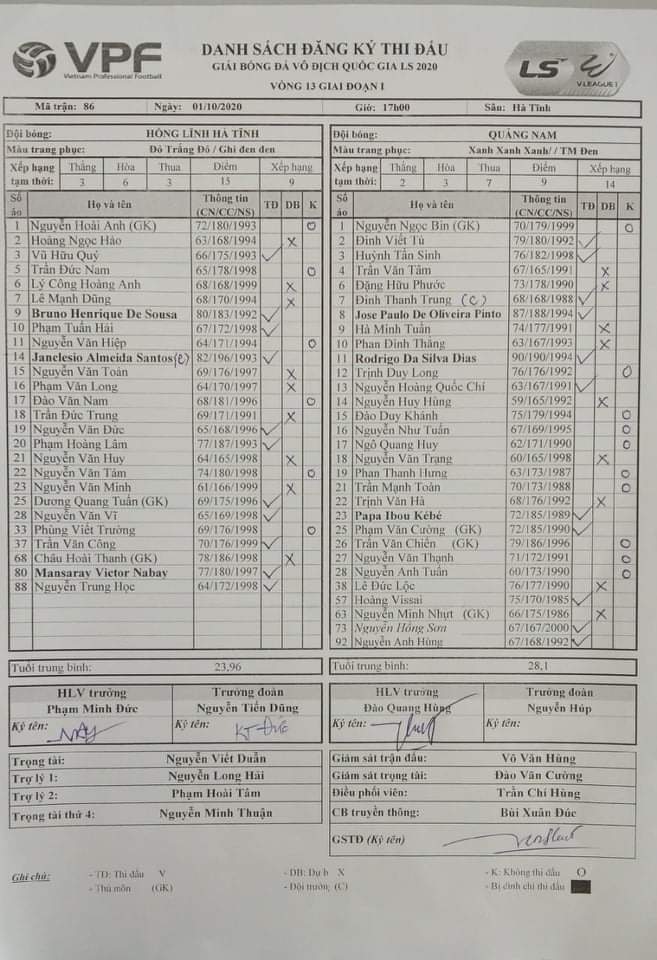 VPF
Vietnam Professional Football
DANH SÁCH ĐĂNG KÝ THI ĐẤU
GIẢI BÓNG ĐÁ VÔ ĐỊCH QUỐC GIA LS 2020
VÒNG 13 GIAI ĐOẠN I
LS
V.LEAGUE 1
Mã trận: 86 Ngày: 01/10/2020 Giờ: 17h00 Sân: Hà Tĩnh
Đội bóng: HỒNG LĨNH HÀ TĨNH
Màu trang phục: Đỏ Trắng Đỏ / Ghi đen đen
Xếp hạng tạm thời: Thắng Hòa Thua Điểm Xếp hạng
3 6 3 15 9
Số áo Họ và tên Thông tin (CN/CC/NS) TĐ DB K
1 Nguyễn Hoài Anh (GK) 72/180/1993 O
2 Hoàng Ngọc Hào 63/168/1994 X
3 Vũ Hữu Quý 66/175/1993 V
5 Trần Đức Nam 65/178/1998 O
6 Lý Công Hoàng Anh 68/168/1999 X
7 Lê Mạnh Dũng 68/170/1994 X
9 Bruno Henrique De Sousa 80/183/1992 V
10 Phạm Tuấn Hải 67/172/1998 V
11 Nguyễn Văn Hiệp 64/171/1994 O
14 Janclesio Almeida Santos (C) 82/196/1993 V
15 Nguyễn Văn Toản 69/176/1997 X
16 Phạm Văn Long 64/170/1997 X
17 Đào Văn Nam 68/181/1996 O
18 Trần Đức Trung 69/171/1991 X
19 Nguyễn Văn Đức 65/168/1996 V
20 Phạm Hoàng Lâm 77/187/1993 V
21 Nguyễn Văn Huy 64/165/1998 X
22 Nguyễn Văn Tám 74/180/1998 O
23 Nguyễn Văn Minh 61/166/1999 X
25 Dương Quang Tuấn (GK) 69/175/1996 V
28 Nguyễn Văn Vĩ 65/169/1998 V
33 Phùng Viết Trường 69/176/1998 O
37 Trần Văn Công 70/176/1999 V
68 Châu Hoài Thanh (GK) 78/186/1998 X
80 Mansaray Victor Nabay 77/180/1997 V
88 Nguyễn Trung Học 64/172/1998 V
Tuổi trung bình: 23,96
HLV trưởng Trưởng đoàn
Phạm Minh Đức Nguyễn Tiến Dũng
Ký tên: Ký tên: KT ĐỨC
Trọng tài: Nguyễn Viết Duẩn
Trợ lý 1: Nguyễn Long Hải
Trợ lý 2: Phạm Hoài Tâm
Trọng tài thứ 4: Nguyễn Minh Thuận
Đội bóng: QUẢNG NAM
Màu trang phục: Xanh Xanh Xanh/ / TM Đen
Xếp hạng tạm thời: Thắng Hòa Thua Điểm Xếp hạng
2 3 7 9 14
Số áo Họ và tên Thông tin (CN/CC/NS) TĐ DB K
1 Nguyễn Ngọc Bin (GK) 70/179/1999 O
2 Đinh Viết Tú 79/180/1992 V
3 Huỳnh Tấn Sinh 76/182/1998 V
4 Trần Văn Tâm 67/165/1991 X
6 Đặng Hữu Phước 73/178/1990 X
7 Đinh Thanh Trung (C) 68/168/1988 V
8 Jose Paulo De Oliveira Pinto 87/188/1994 V
9 Hà Minh Tuấn 74/177/1991 X
10 Phan Đình Thắng 63/167/1993 X
11 Rodrigo Da Silva Dias 90/190/1994 V
12 Trịnh Duy Long 76/176/1992 O
13 Nguyễn Hoàng Quốc Chí 63/167/1991 V
14 Nguyễn Huy Hùng 59/165/1992 X
15 Đào Duy Khánh 75/179/1994 O
16 Nguyễn Như Tuấn 67/169/1995 O
17 Ngô Quang Huy 62/171/1990 O
18 Nguyễn Văn Trạng 60/165/1998 X
19 Phan Thanh Hưng 63/173/1987 O
21 Trần Mạnh Toàn 70/173/1988 O
22 Trịnh Văn Hà 68/176/1992 X
23 Papa Ibou Kébé 72/185/1989 V
25 Phạm Văn Cường (GK) 72/185/1990 V
26 Trần Văn Chiến (GK) 79/186/1996 O
27 Nguyễn Văn Thạnh 71/172/1991 O
28 Nguyễn Anh Tuấn 60/173/1990 O
38 Lê Đức Lộc 76/177/1990 X
57 Hoàng Vissai 75/170/1985 V
63 Nguyễn Minh Nhựt (GK) 66/175/1986 X
73 Nguyễn Hồng Sơn 67/167/2000 V
92 Nguyễn Anh Hùng 67/168/1992 V
Tuổi trung bình: 28,1
HLV trưởng Trưởng đoàn
Đào Quang Hùng Nguyễn Húp
Ký tên: Ký tên:
Giám sát trận đấu: Võ Văn Hùng
Giám sát trọng tài: Đào Văn Cường
Điều phối viên: Trần Chí Hùng
CB truyền thông: Bùi Xuân Đức
GSTĐ (Ký tên)
Ghi chú: - TĐ: Thi đấu V - DB: Dự b X - K: Không thi đấu O
- Thủ môn (GK) - Đội trưởng (C) - Bị đình chỉ thi đấu